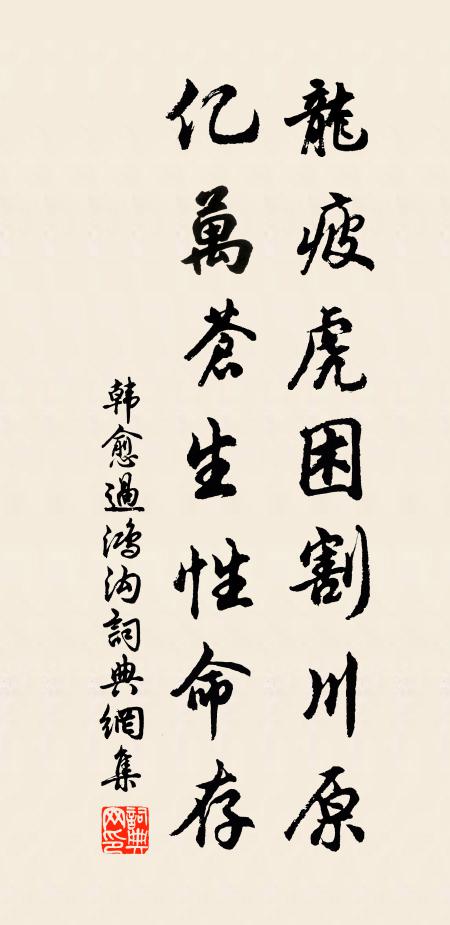 龍疲虎困割川原
亿萬蒼生性命存
韩愈過鴻沟詞典網集
詞典网印